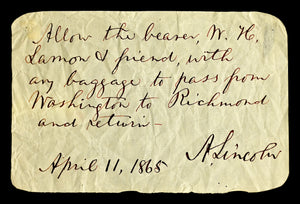 Allow the bearer, W. H.
Lamon & friend, with
any baggage to pass from
Washington to Richmond
and return—
A. Lincoln
April 11, 1865